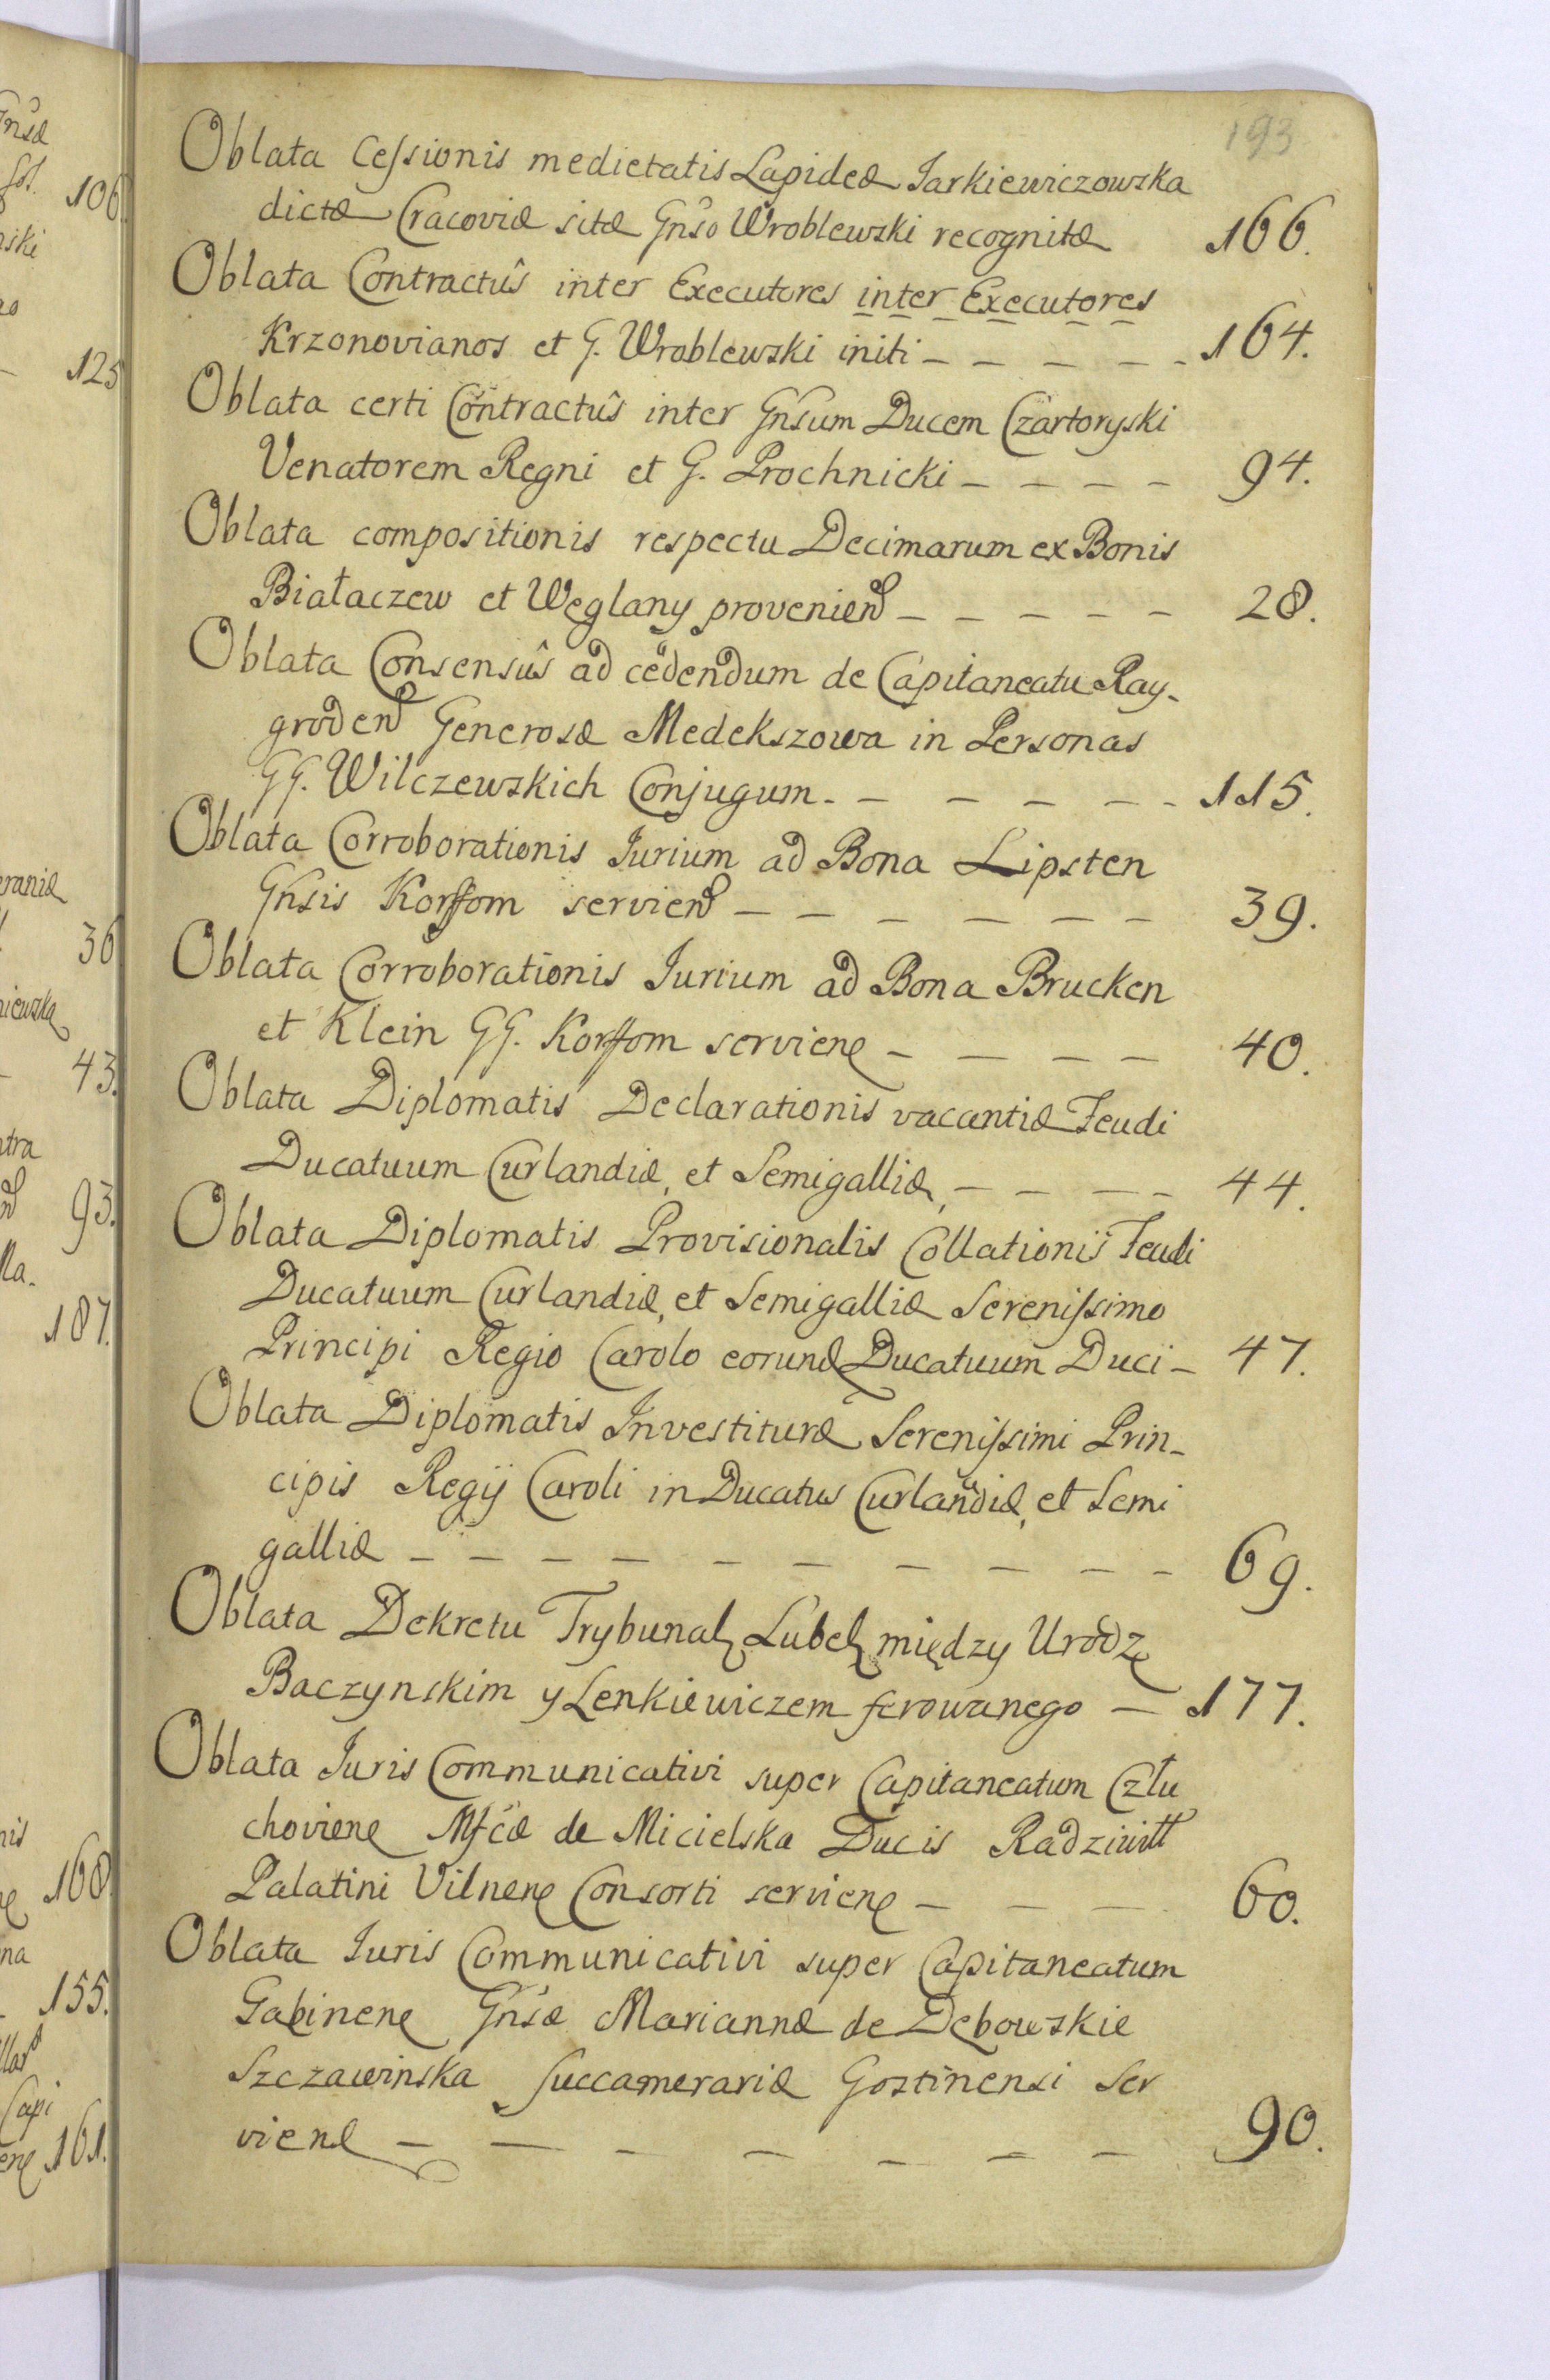 193
Oblata Cessionis medietatis Lapideæ Jarkiewiczowska
dictæ Cracoviæ sitæ Gnso Wroblewski recognitæ 166.
Oblata Contractûs inter Executores inter Executores
Krzonovianos et G. Wroblewski initi - - - - - 164.
Oblata certi Contractûs inter Gnsum Ducem Czartoryski
Venatorem Regni et G. Prochnicki - - - - 94.
Oblata compositionis respectu Decimarum ex Bonis
Białaczew et Węglany provenien - - - - - 28.
Oblata Consensûs ad cedendum de Capitaneatu Ray-
groden Generosæ Medekszowa in Personas
GG. Wilczewskich Conjugum - - - - - - 115.
Oblata Corroborationis Jurium ad Bona Lipsten
Gnsis Korffom servien - - - - - - 39.
Oblata Corroborationis Jurium ad Bona Brucken
et Klein GG. Korffom servien - - - - 40.
Oblata Diplomatis Declarationis vacantiæ Feudi
Ducatuum Curlandiæ, et Semigalliæ, - - - - 44.
Oblata Diplomatis Provisionalis Collationis Feudi
Ducatuum Curlandiæ, et Semigalliæ Serenissimo
Principi Regio Carolo eorund Ducatuum Duci - 47.
Oblata Diplomatis Investituræ Serenissimi Prin-
cipis Regij Caroli in Ducatus Curlandiæ, et Semi
galliæ - - - - - - - - - 69.
Oblata Dekretu Trybunal Lubel między Urodz
Baczynskim y Lenkiewiczem ferowanego - 177.
Oblata Juris Communicativi super Capitaneatum Człu
chovien Mfcæ de Micielska Ducis Radziwiłł
Palatini Vilnen Consorti servien - - - - 60.
Oblata Juris Communicativi super Capitaneatum
Gąbinen Gnsæ Mariannæ de Dębowskie
Szczawinska Succamerariæ Gostinensi Ser
vien - - - - - - - 90.